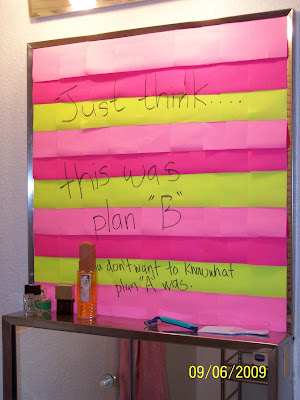 Just think....
this was
plan "B"
u don't want to know what
plan "A" was.
09/06/2009